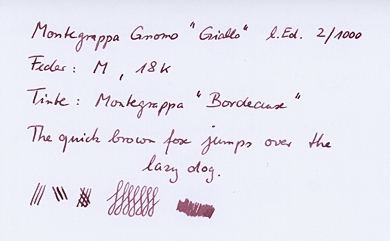 Montegrappa Gnomo "Giallo" l.Ed. 2/1000
Feder: M, 18k
Tinte: Montegrappa "Bordeaux"
The quick brown fox jumps over the
lazy dog.